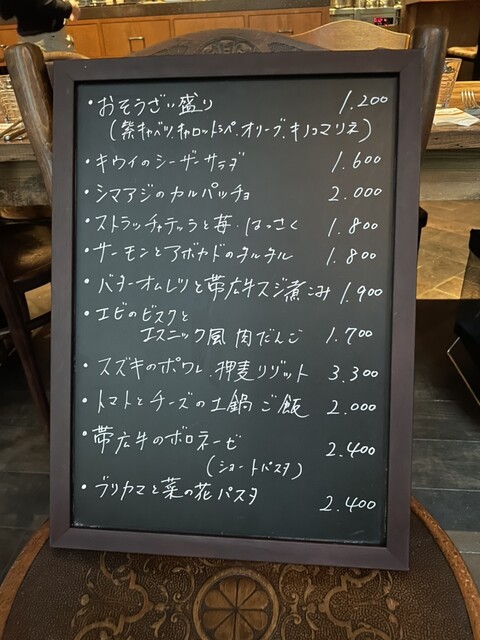 ・おそうざい盛り 1.200
(紫キャベツ、キャロットラペ、オリーブ、キノコマリネ)
・キウイのシーザーサラダ 1.600
・シマアジのカルパッチョ 2.000
・ストラッチャテッラと苺・はっさく 1.800
・サーモンとアボカドのタルタル 1.800
・バターオムレツと帯広牛スジ煮こみ 1.900
・エビのビスクと
エスニック風肉だんご 1.700
・スズキのポワレ、押麦リゾット 3.300
・トマトとチーズの土鍋ご飯 2.000
・帯広牛のボロネーゼ 2.400
(ショートパスタ)
・ブリカマと菜の花パスタ 2.400